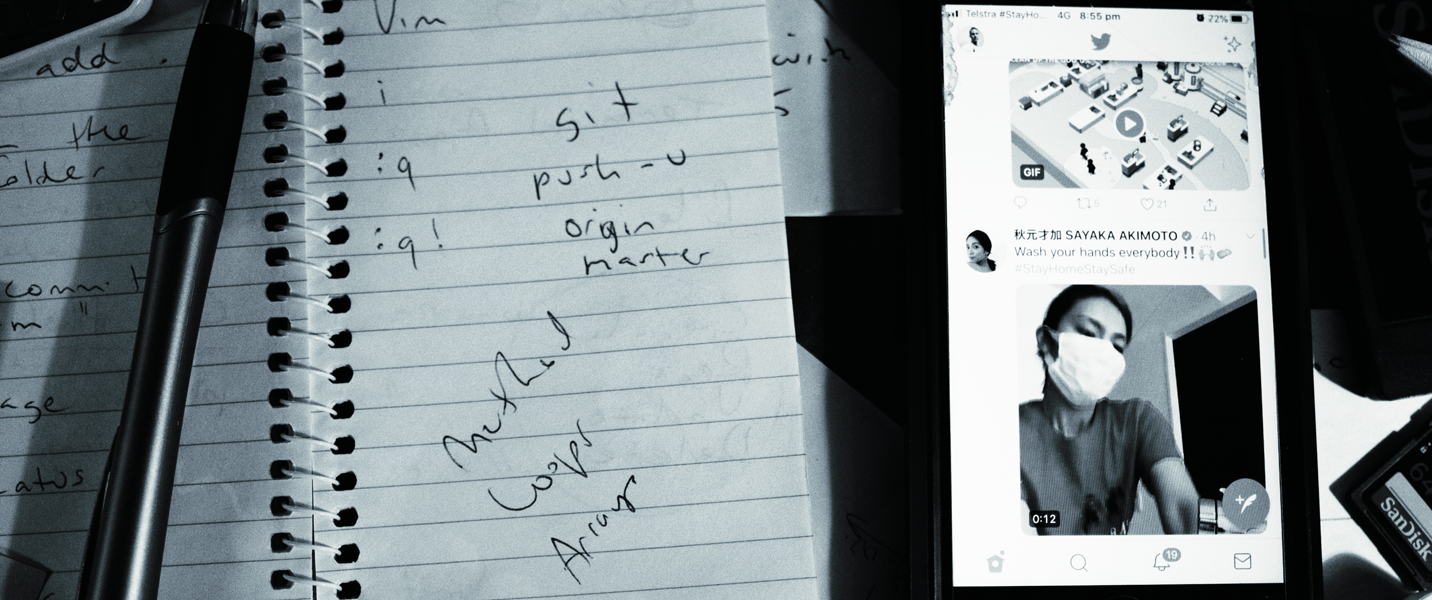 add.
the
commit
Vim
i
:q
:q!
git
push -u
origin
master
Method
Loops
Arrays
with
Telstra #StayHo... 4G 8:55 pm 22%
GIF
5 21
秋元才加 SAYAKA AKIMOTO · 4h
Wash your hands everybody‼️🙌🧼
#StayHomeStaySafe
0:12
19
SanDisk
64